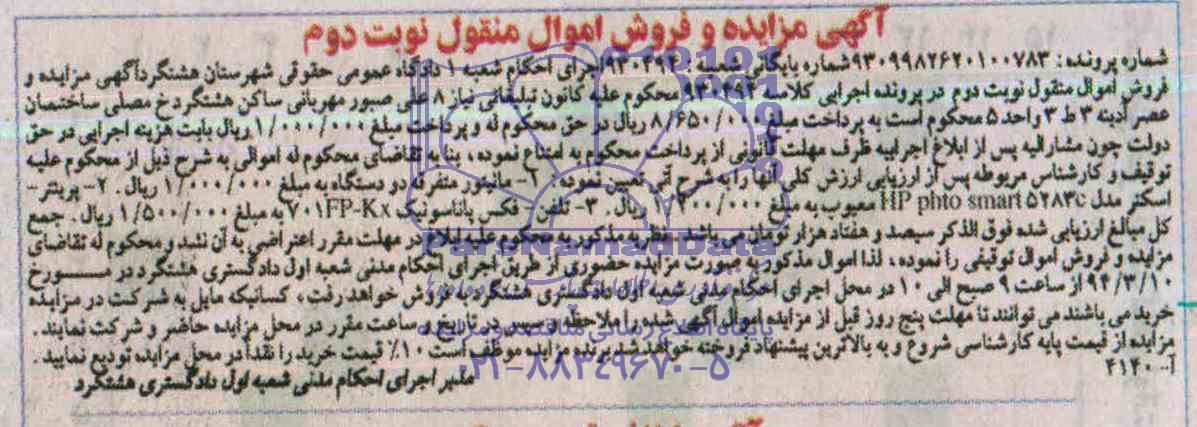 آگهی مزایده و فروش اموال منقول نوبت دوم
شماره پرونده : ۹۳۰۹۹۸۲۶۲۰۱۰۰۷۸۳ شماره بایگانی شعبه : ۹۳۰۴۹۲ اجرای احکام شعبه ۱ دادگاه عمومی حقوقی شهرستان هشتگرد آگهی مزایده و
فروش اموال منقول نوبت دوم در پرونده اجرایی کلاسه ۹۳۰۴۹۲ محکوم علیه کانون تبلیغاتی نیاز ۸ علی صبور مهربانی ساکن هشتگرد خ مصلی ساختمان
عصر آدینه ۳ ط ۳ واحد ۵ محکوم است به پرداخت مبلغ ۸/۶۵۰/۰۰۰ ریال در حق محکوم له و پرداخت مبلغ ۱/۰۰۰/۰۰۰ ریال بابت هزینه اجرایی در حق
دولت چون مشارالیه پس از ابلاغ اجراییه ظرف مهلت قانونی از پرداخت محکوم به امتناع نموده ، بنا به تقاضای محکوم له اموالی به شرح ذیل از محکوم علیه
توقیف و کارشناس مربوطه پس از ارزیابی ارزش کلی آنها را به شرح آتی تعیین نموده . ۱- مانیتور متفرقه دو دستگاه به مبلغ ۱/۰۰۰/۰۰۰ ریال . ۲- پرینتر-
اسکنر مدل HP phto smart ۵۲۸۳c معیوب به مبلغ ۱/۲۰۰/۰۰۰ ریال . ۳- تلفن - فکس پاناسونیک ۷۰۱FP-Kx به مبلغ ۱/۵۰۰/۰۰۰ ریال . جمع
کل مبالغ ارزیابی شده فوق الذکر سیصد و هفتاد هزار تومان می باشد . نظر به مذکور به محکوم علیه ابلاغ در مهلت مقرر اعتراضی به آن نشد و محکوم له تقاضای
مزایده و فروش اموال توقیفی را نموده ، لذا اموال مذکور به صورت مزایده حضوری از طریق اجرای احکام مدنی شعبه اول دادگستری هشتگرد در مــورخ
۹۴/۳/۱۰ از ساعت ۹ صبح الی ۱۰ در محل اجرای احکام مدنی شعبه اول دادگستری هشتگرد به فروش خواهد رفت ، کسانیکه مایل به شرکت در مزایده
خرید می باشند می توانند تا مهلت پنج روز قبل از مزایده اموال آگهی شده را ملاحظه و سپس در تاریخ و ساعت مقرر در محل مزایده حاضر و شرکت نمایند .
مزایده از قیمت پایه کارشناسی شروع و به بالاترین پیشنهاد فروخته خواهد شد برنده مزایده موظف است ۱۰٪ قیمت خرید را نقداً در محل مزایده تودیع نمایید .
آ- ۴۱۴۰
مدیر اجرای احکام مدنی شعبه اول دادگستری هشتگرد
ParsNamadData
پایگاه اطلاع رسانی مناقصه و مزایده
۰۲۱-۸۸۳۴۹۶۷۰-۵